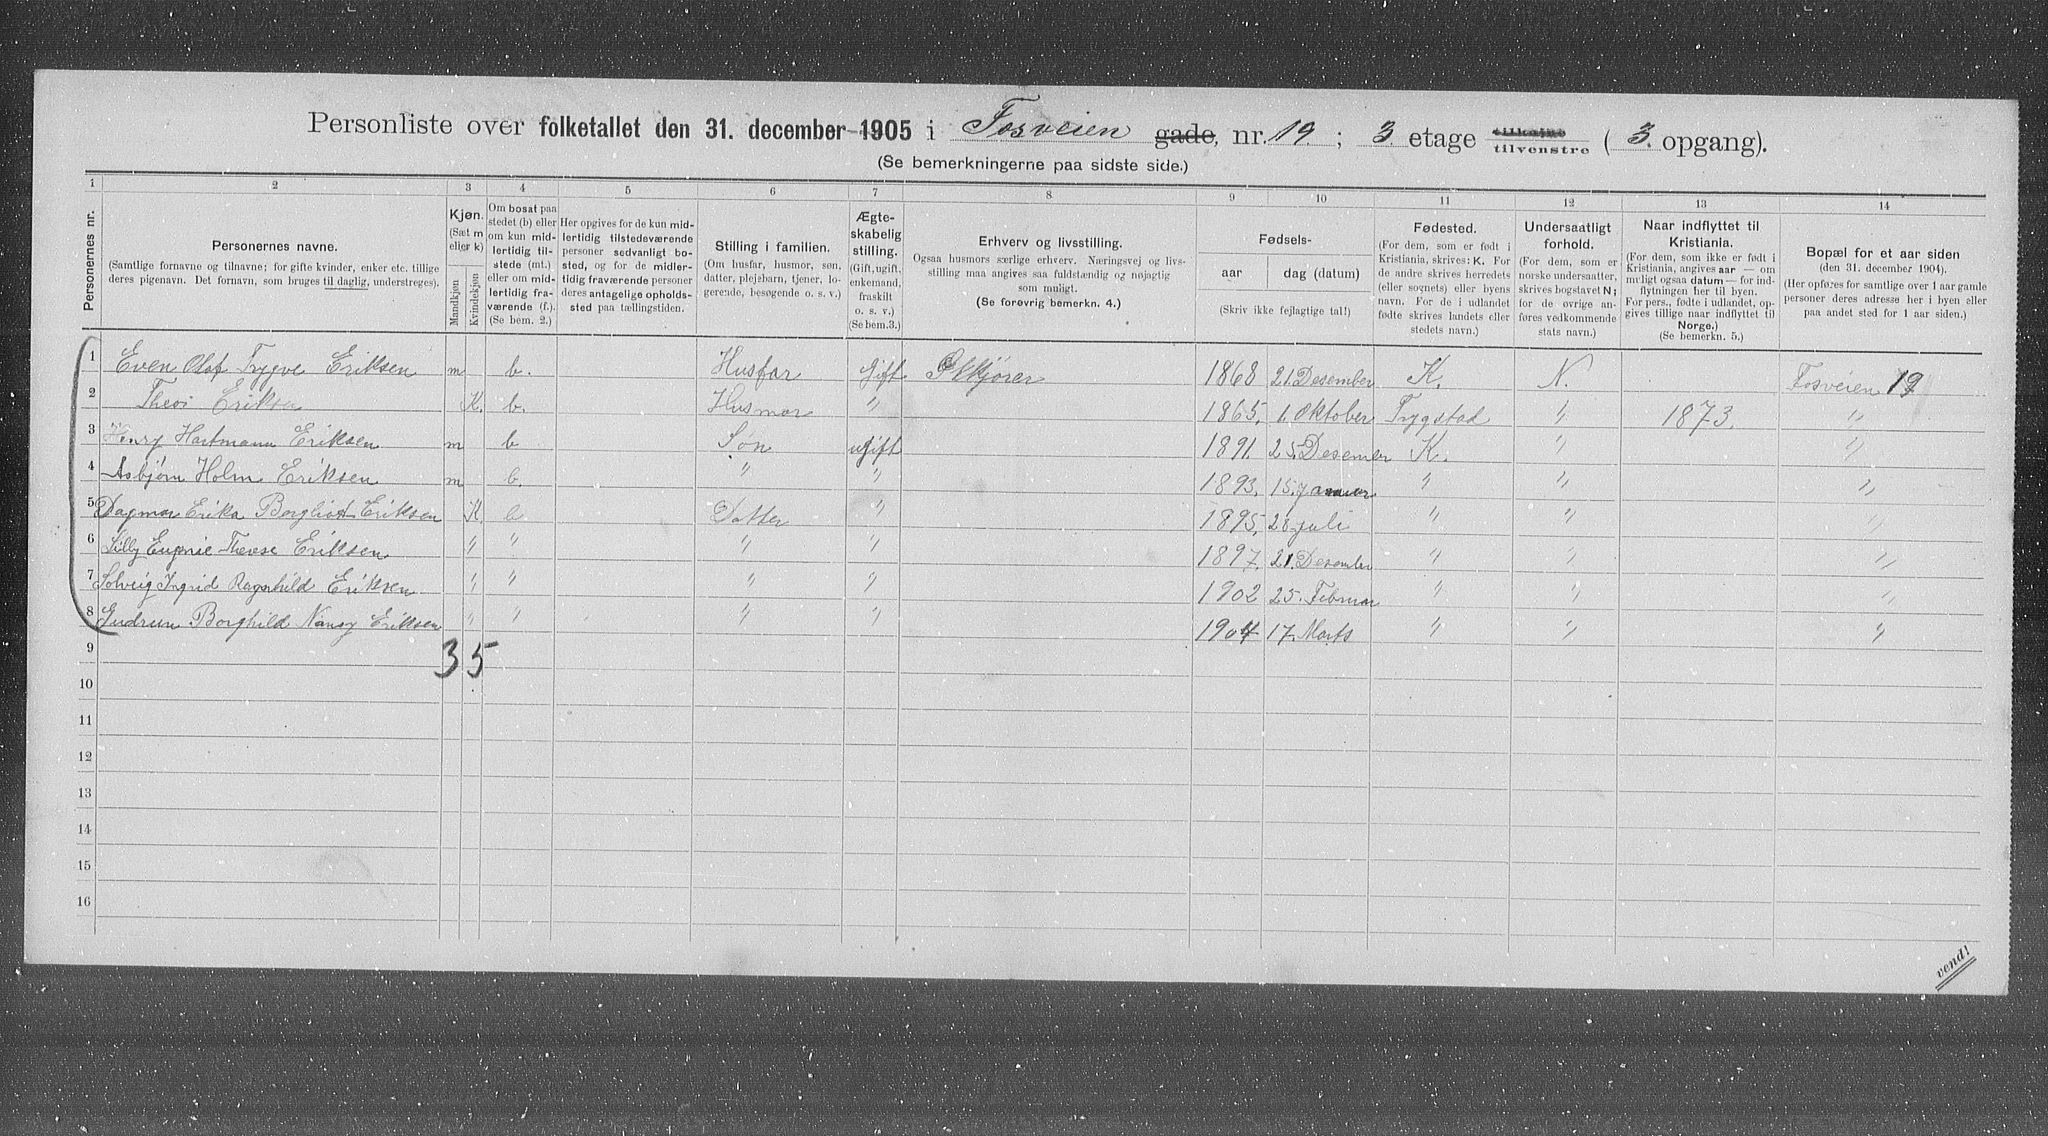 Personliste over folketallet den 31. december 1905 i Fosveien gade, nr. 19. ; 3. etage tilvenstre ( 3. opgang).
(Se bemerkningerne paa sidste side.)
1 2 3 4 5 6 7 8 9 10 11 12 13 14
Personernes nr.
Personernes navne.
(Samtlige fornavne og tilnavne; for gifte kvinder, enker etc. tillige
deres pigenavn. Det fornavn, som bruges til daglig, understreges).
Kjøn.
(Sæt m
eller k)
Mandkjøn
Kvindekjøn
Om bosat paa
stedet (b) eller
om kun mid-
lertidig til-
stede (mt.)
eller om mid-
lertidig fra-
værende (f.).
(Se bem. 2.)
Her opgives for de kun mid-
lertidig tilstedeværende
personer sedvanligt bo-
sted, og for de midler-
tidig fraværende personer
deres antagelige opholds-
sted paa tællingstiden.
Stilling i familien.
(Om husfar, husmor, søn,
datter, plejebarn, tjener, lo-
gerende, besøgende o. s. v.)
Ægte-
skabelig
stilling.
(Gift, ugift,
enkemand,
fraskilt
o. s. v.)
(Se bem.3.)
Erhverv og livsstilling.
Ogsaa husmors særlige erhverv. Næringsvej og livs-
stilling maa angives saa fuldstændig og nøjagtig
som muligt.
(Se forøvrig bemerkn. 4.)
Fødsels-
aar dag (datum)
(Skriv ikke fejlagtige tal!)
Fødested.
(For dem, som er født i
Kristiania, skrives: K. For
de andre skrives herredets
(eller sognets) eller byens
navn. For de i udlandet
fødte skrives landets eller
stedets navn.)
Undersaatligt
forhold.
(For dem, som er
norske undersaatter,
skrives bogstavet N;
for de øvrige an-
føres vedkommende
stats navn.)
Naar indflyttet til
Kristiania.
(For dem, som ikke er født i
Kristiania, angives aar — om
muligt ogsaa datum — for ind-
flytningen her til byen.
For pers., fødte i udlandet, op-
gives tillige naar indflyttet til
Norge.)
(Se bemerkn. 5.)
Bopæl for et aar siden
(den 31. december 1904.)
(Her opføres for samtlige over 1 aar gamle
personer deres adresse her i byen eller
paa andet sted for 1 aar siden.)
1 Even Olaf Trygve Eriksen m b. Husfar Gift 1868 21. Desember K. N. Fosveien 19
2 Eriksen K. b. Husmor " 1865. 1. Oktober Trygstad " 1873. "
3 Henry Hartmann Eriksen m b Søn ugift 1891. 25. Desember K. " "
4 Asbjørn Holm Eriksen m b. " " 1893. 15. Januar " " "
5 Dagmar Erika Borgliot Eriksen K b Datter " 1895. 28 juli " " "
6 Lilly Eugenie Therese Eriksen " " " " 1897. 21. Desember " " "
7 Solveig Ingrid Ragnhild Eriksen " " " " 1902 25. Februar " " "
8 Gudrun Borghild Nansy Eriksen " " " " 1904 17. Marts " " "
9 3 5
10
11
12
13
14
15
16
vend!